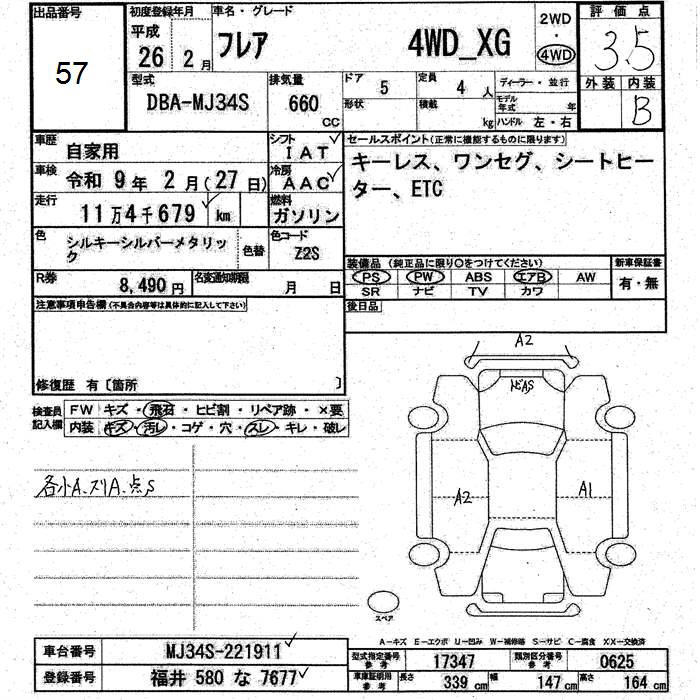 出品番号
57
初度登録年月
平成
26 2月
車名・グレード
フレア 4WD_XG
2WD
・
4WD
評価点
3.5
外装 内装
B
型式
DBA-MJ34S
排気量
660
CC
ドア 5
定員 4 人
形状
積載 kg
ディーラー・並行
モデル年式 年
ハンドル 左・右
車歴
自家用
シフト
IAT
車検 令和 9年 2月(27日)
冷房
AAC
走行 11万4千679 km
燃料
ガソリン
色
シルキーシルバーメタリック
色替
色コード
Z2S
R券 8,490円
名変通知期限 月 日
セールスポイント(正常に機能するものに限ります)
キーレス、ワンセグ、シートヒー
ター、ETC
装備品(純正品に限り○をつけてください)
PS PW ABS エアB AW
SR ナビ TV カワ
新車保証書
有・無
後日品
注意事項申告欄(不具合内容等は具体的に記入して下さい)
修復歴 有〔箇所 〕
検査員記入欄
FW キズ・飛石・ヒビ割・リペア跡・×要
内装 キズ・汚レ・コゲ・穴・スレ・キレ・破レ
各小A.スリA.点S
A2
飛石S
A2
A1
スペア
A－キズ E－エクボ U－凹み W－補修跡 S－サビ C－腐食 XX－交換済
車台番号 MJ34S-221911
登録番号 福井 580 な 7677
型式指定番号 参考 17347
類別区分番号 参考 0625
車庫証明用 参考
長さ 339 cm
幅 147 cm
高さ 164 cm